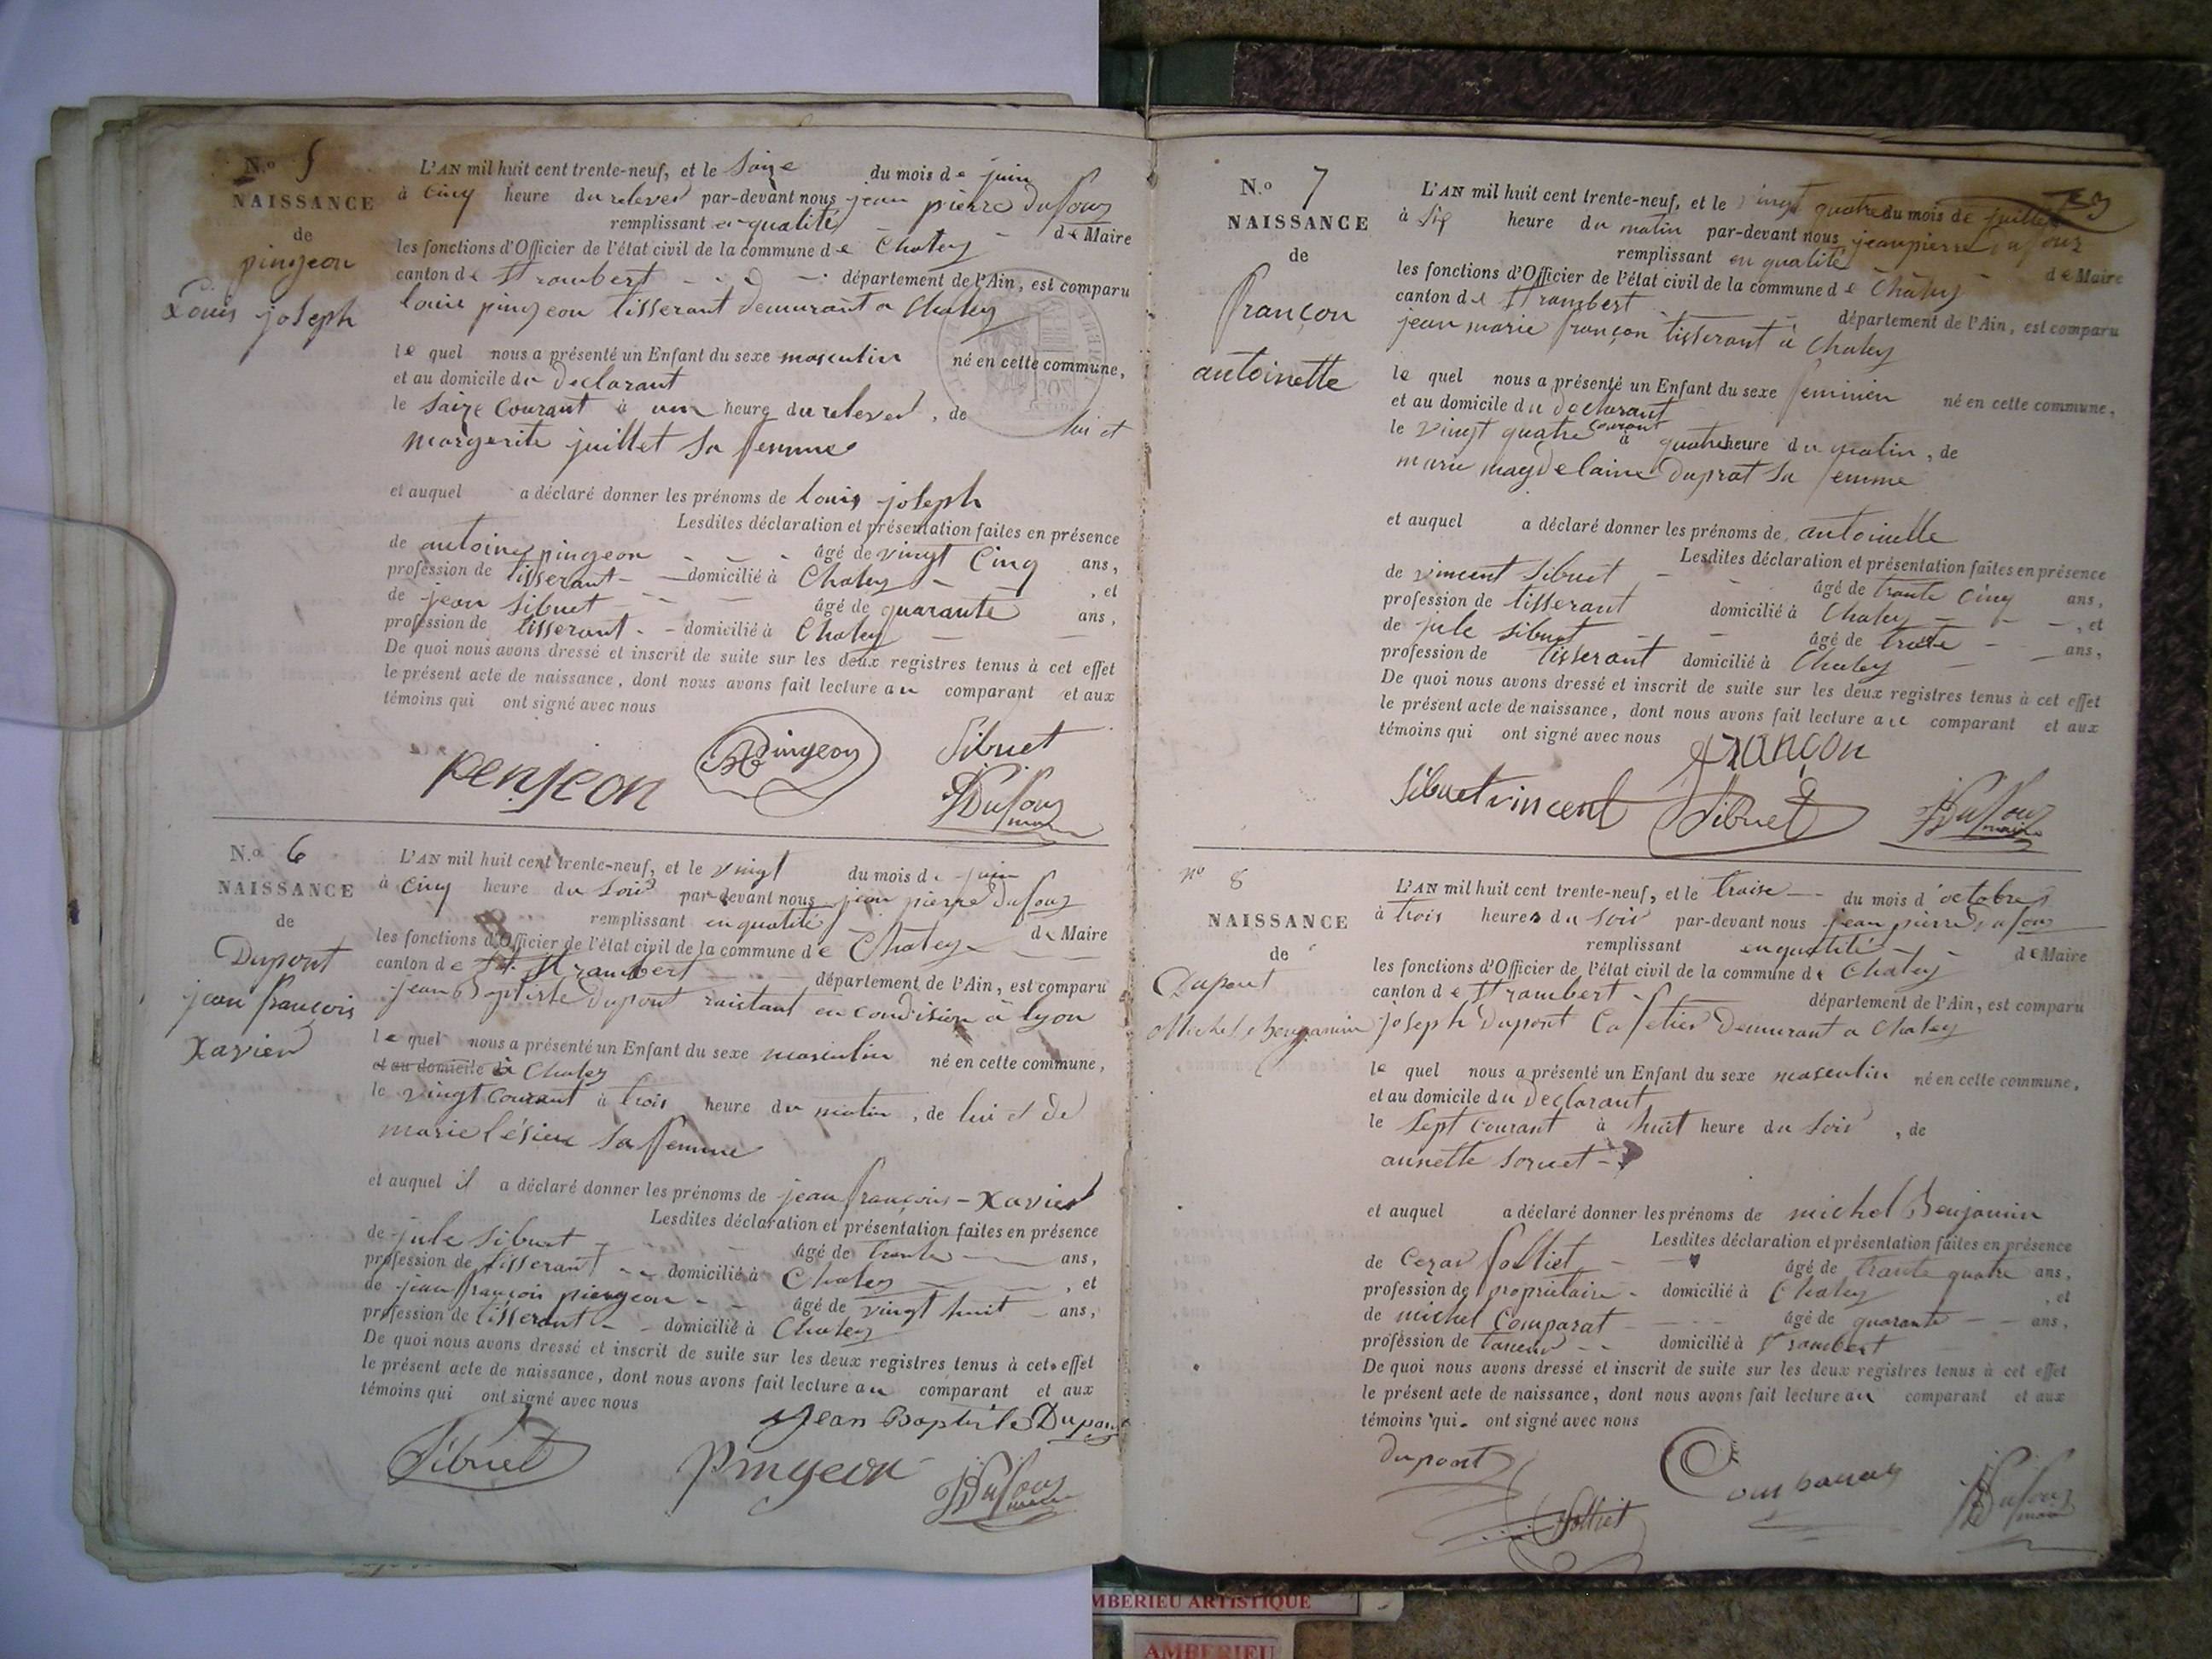 N.o 5
NAISSANCE
de
pingeon
Louis joseph
L'AN mil huit cent trente-neuf, et le saize du mois de juin
à cinq heure du relever par-devant nous jean pierre Dufour
remplissant en qualité de Maire
les fonctions d'Officier de l'état civil de la commune de Chaley
canton de St rambert département de l'Ain, est comparu
louis pingeon tisserant demurant a Chaley
le quel nous a présenté un Enfant du sexe masculin né en cette commune,
et au domicile du declarant
le saize courant à un heure du relever, de lui et
margerite juillet sa femme
et auquel a déclaré donner les prénoms de louis joseph
Lesdites déclaration et présentation faites en présence
de antoine pingeon âgé de vingt cinq ans,
profession de tisserant domicilié à Chaley, et
de jean Sibuet âgé de quarante ans,
profession de tisserant domicilié à Chaley
De quoi nous avons dressé et inscrit de suite sur les deux registres tenus à cet effet
le présent acte de naissance, dont nous avons fait lecture au comparant et aux
témoins qui ont signé avec nous
penjeon Pingeon Sibuet
JPDufour
maire
N.o 6
NAISSANCE
de
Dupont
jean françois
Xavier
L'AN mil huit cent trente-neuf, et le vingt du mois de juin
à cinq heure du soir par-devant nous jean pierre Dufour
remplissant en qualité de Maire
les fonctions d'Officier de l'état civil de la commune de Chaley
canton de St rambert département de l'Ain, est comparu
jean Baptiste Dupont raistant en condision à lyon
le quel nous a présenté un Enfant du sexe masculin né en cette commune,
et au domicile à Chaley
le vingt courant à trois heure du matin, de lui et de
marie lésieu sa femme
et auquel il a déclaré donner les prénoms de jean françois - Xavier
Lesdites déclaration et présentation faites en présence
de jule Sibuet âgé de trente ans,
profession de tisserant domicilié à Chaley, et
de jean françois piengeon âgé de vingt huit ans,
profession de tisserant domicilié à Chaley
De quoi nous avons dressé et inscrit de suite sur les deux registres tenus à cet effet
le présent acte de naissance, dont nous avons fait lecture au comparant et aux
témoins qui ont signé avec nous
Jean Baptiste Dupont
Sibuet Pingeon JPDufour
maire
N.o 7
NAISSANCE
de
françon
antoinette
L'AN mil huit cent trente-neuf, et le vingt quatre du mois de juillet
à six heure du matin par-devant nous jean pierre Dufour
remplissant en qualité de Maire
les fonctions d'Officier de l'état civil de la commune de Chaley
canton de St rambert département de l'Ain, est comparu
jean marie françon tisserant à Chaley
le quel nous a présenté un Enfant du sexe feminien né en cette commune,
et au domicile du declarant
le vingt quatre courant à quatre heure du matin, de
marie magdelaine Duprat sa femme
et auquel a déclaré donner les prénoms de antoinette
Lesdites déclaration et présentation faites en présence
de vincent Sibuet âgé de trante cinq ans,
profession de tisserant domicilié à Chaley, et
de jule sibuet âgé de trente ans,
profession de tisserant domicilié à Chaley
De quoi nous avons dressé et inscrit de suite sur les deux registres tenus à cet effet
le présent acte de naissance, dont nous avons fait lecture au comparant et aux
témoins qui ont signé avec nous françon
Sibuet vincent Sibuet JPDufour
maire
no 8
NAISSANCE
de
Dupont
Michel Benjamin
L'AN mil huit cent trente-neuf, et le traise du mois d'octobre
à trois heures du soir par-devant nous jean pierre Dufour
remplissant en qualité de Maire
les fonctions d'Officier de l'état civil de la commune de Chaley
canton de St rambert département de l'Ain, est comparu
joseph Dupont Cafetier Demurant a Chaley
le quel nous a présenté un Enfant du sexe masculin né en cette commune,
et au domicile du declarant
le sept courant à huit heure du soir, de
annette sornet
et auquel a déclaré donner les prénoms de michel Benjamin
Lesdites déclaration et présentation faites en présence
de Cezar folliet âgé de trante quatre ans,
profession de propriétaire domicilié à Chaley, et
de michel Comparat âgé de quarante ans,
profession de taneur domicilié à St rambert
De quoi nous avons dressé et inscrit de suite sur les deux registres tenus à cet effet
le présent acte de naissance, dont nous avons fait lecture au comparant et aux
témoins qui ont signé avec nous
dupont JPDufour
maire
folliet
AMBERIEU ARTISTIQUE
AMBERIEU